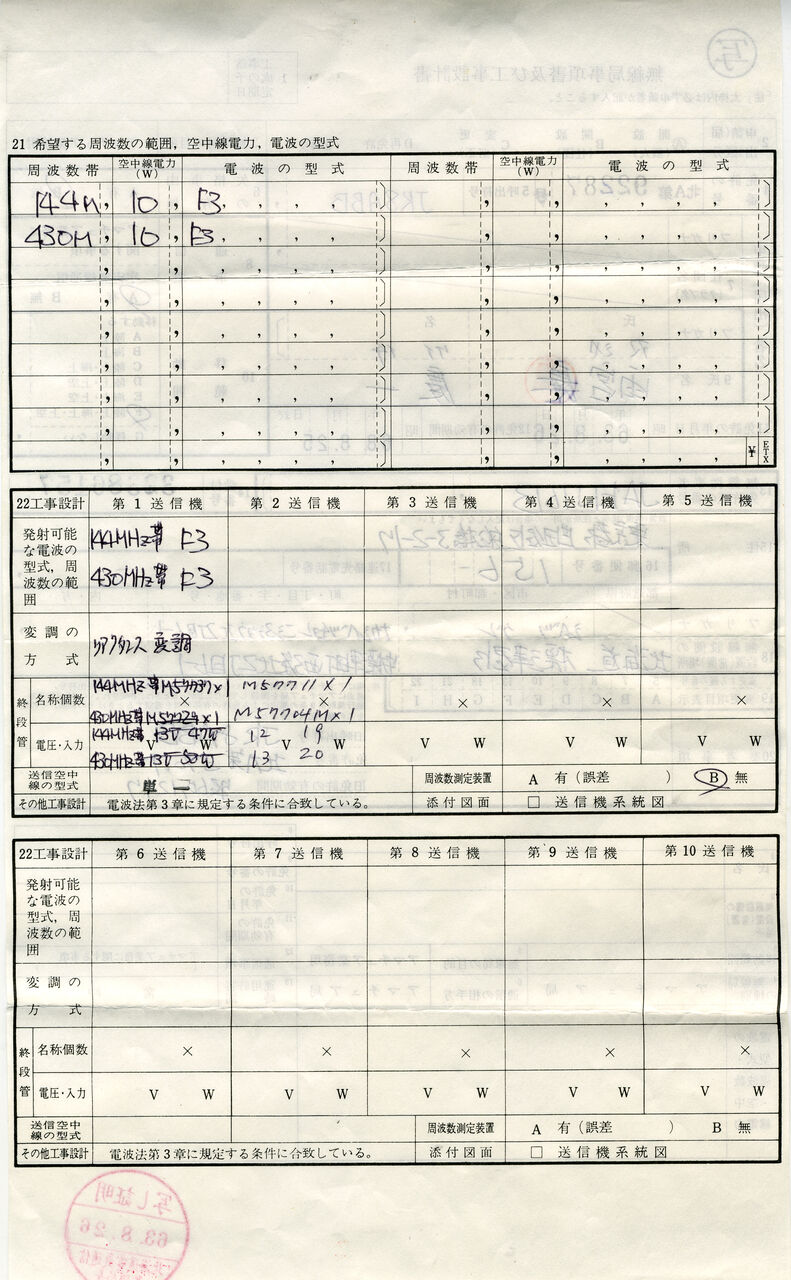 21 希望する周波数の範囲，空中線電力，電波の型式
周波数帯 空中線電力(W) 電波の型式 周波数帯 空中線電力(W) 電波の型式
144M, 10, F3,
430M, 10, F3,
¥ ETX
22工事設計 第1送信機 第2送信機 第3送信機 第4送信機 第5送信機
発射可能な電波の型式，周波数の範囲
144MHz帯 F3
430MHz帯 F3
変調の方式 リアクタンス変調
終段管
名称個数 144MHz帯M57737×1 M57711×1 × × ×
430MHz帯M57729×1 M57704M×1
電圧・入力 144MHz帯 13V 47W 12 19 V W V W V W V W V W
430MHz帯 13V 50W 13 20
送信空中線の型式 単一 周波数測定装置 A 有（誤差 ） B 無
その他工事設計 電波法第3章に規定する条件に合致している。 添付図面 □ 送信機系統図
22工事設計 第6送信機 第7送信機 第8送信機 第9送信機 第10送信機
発射可能な電波の型式，周波数の範囲
変調の方式
終段管
名称個数 × × × × ×
電圧・入力 V W V W V W V W V W
送信空中線の型式 周波数測定装置 A 有（誤差 ） B 無
その他工事設計 電波法第3章に規定する条件に合致している。 添付図面 □ 送信機系統図
写し証明
63.8.26